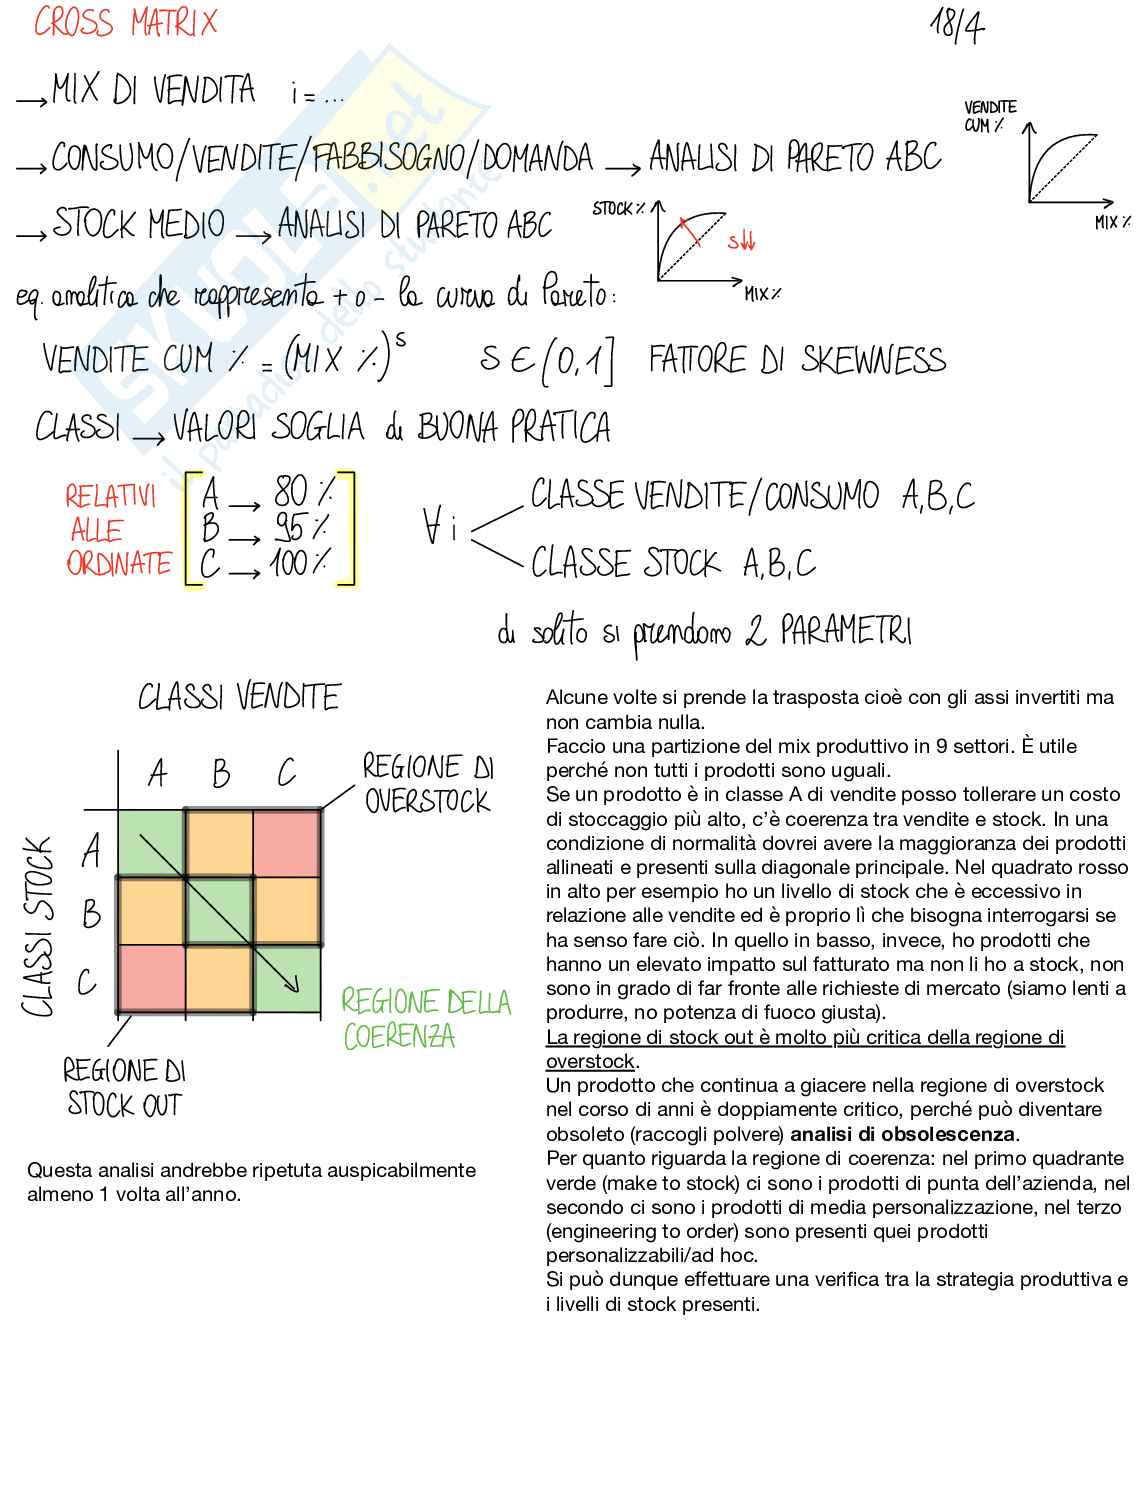 CROSS MATRIX
18/4
→ MIX DI VENDITA i = ...
→ CONSUMO/VENDITE/FABBISOGNO/DOMANDA → ANALISI DI PARETO ABC
VENDITE
CUM %
MIX %
→ STOCK MEDIO → ANALISI DI PARETO ABC
STOCK %
S↓↓
MIX %
eq. analitica che rappresenta + o - la curva di Pareto:
VENDITE CUM % = (MIX %)^s S ∈ (0,1] FATTORE DI SKEWNESS
CLASSI → VALORI SOGLIA di BUONA PRATICA
RELATIVI
ALLE
ORDINATE
A → 80 %
B → 95 %
C → 100 %
∀ i
CLASSE VENDITE/CONSUMO A,B,C
CLASSE STOCK A,B,C
di solito si prendono 2 PARAMETRI
CLASSI VENDITE
A B C
REGIONE DI
OVERSTOCK
CLASSI STOCK
A
B
C
REGIONE DELLA
COERENZA
REGIONE DI
STOCK OUT
Questa analisi andrebbe ripetuta auspicabilmente
almeno 1 volta all'anno.
Alcune volte si prende la trasposta cioè con gli assi invertiti ma
non cambia nulla.
Faccio una partizione del mix produttivo in 9 settori. È utile
perché non tutti i prodotti sono uguali.
Se un prodotto è in classe A di vendite posso tollerare un costo
di stoccaggio più alto, c'è coerenza tra vendite e stock. In una
condizione di normalità dovrei avere la maggioranza dei prodotti
allineati e presenti sulla diagonale principale. Nel quadrato rosso
in alto per esempio ho un livello di stock che è eccessivo in
relazione alle vendite ed è proprio lì che bisogna interrogarsi se
ha senso fare ciò. In quello in basso, invece, ho prodotti che
hanno un elevato impatto sul fatturato ma non li ho a stock, non
sono in grado di far fronte alle richieste di mercato (siamo lenti a
produrre, no potenza di fuoco giusta).
La regione di stock out è molto più critica della regione di
overstock.
Un prodotto che continua a giacere nella regione di overstock
nel corso di anni è doppiamente critico, perché può diventare
obsoleto (raccogli polvere) analisi di obsolescenza.
Per quanto riguarda la regione di coerenza: nel primo quadrante
verde (make to stock) ci sono i prodotti di punta dell'azienda, nel
secondo ci sono i prodotti di media personalizzazione, nel terzo
(engineering to order) sono presenti quei prodotti
personalizzabili/ad hoc.
Si può dunque effettuare una verifica tra la strategia produttiva e
i livelli di stock presenti.
SKUOLA.net
il paradiso dello studente